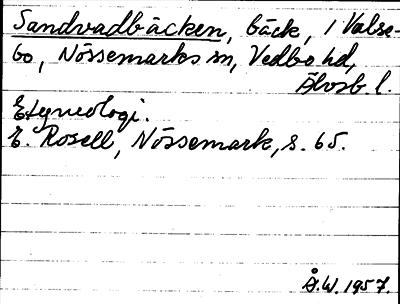 Sandvadbäcken, bäck, i Valse-
bo, Nössemarks sn, Vedbo hd,
Älvsb. l.
Etymologi.
E. Rosell, Nössemark, s. 65.
Å.W. 1957.